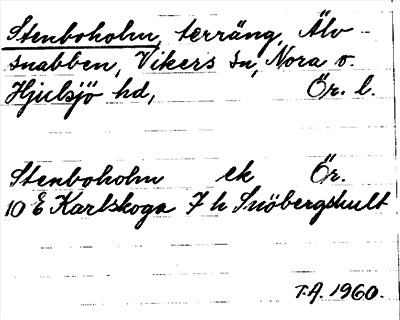 Stenboholm, terräng, Älv-
snabben, Vikers sn, Nora o.
Hjulsjö hd, Ör. l.
Stenboholm ek Ör.
10 E Karlskoga 7 h Snöbergshult
T.A. 1960.